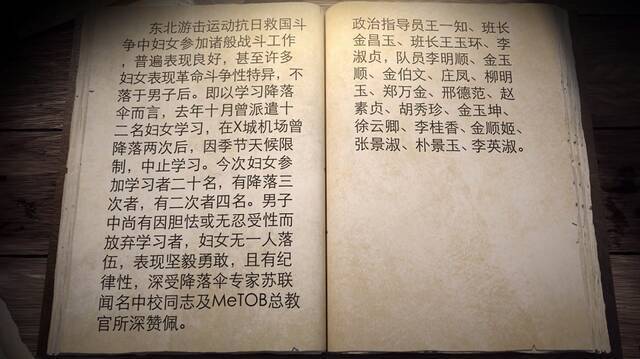 东北游击运动抗日救国斗
争中妇女参加诸般战斗工作
，普遍表现良好，甚至许多
妇女表现革命斗争性特异，不
落于男子后。即以学习降落
伞而言，去年十月曾派遣十
二名妇女学习，在X城机场曾
降落两次后，因季节天候限
制，中止学习。今次妇女参
加学习者二十名，有降落三
次者，有二次者四名。男子
中尚有因胆怯或无忍受性而
放弃学习者，妇女无一人落
伍，表现坚毅勇敢，且有纪
律性，深受降落伞专家苏联
闻名中校同志及MeTOB总教
官所深赞佩。
政治指导员王一知、班长
金昌玉、班长王玉环、李
淑贞，队员李明顺、金玉
顺、金伯文、庄凤、柳明
玉、郑万金、邢德范、赵
素贞、胡秀珍、金玉坤、
徐云卿、李桂香、金顺姬、
张景淑、朴景玉、李英淑。